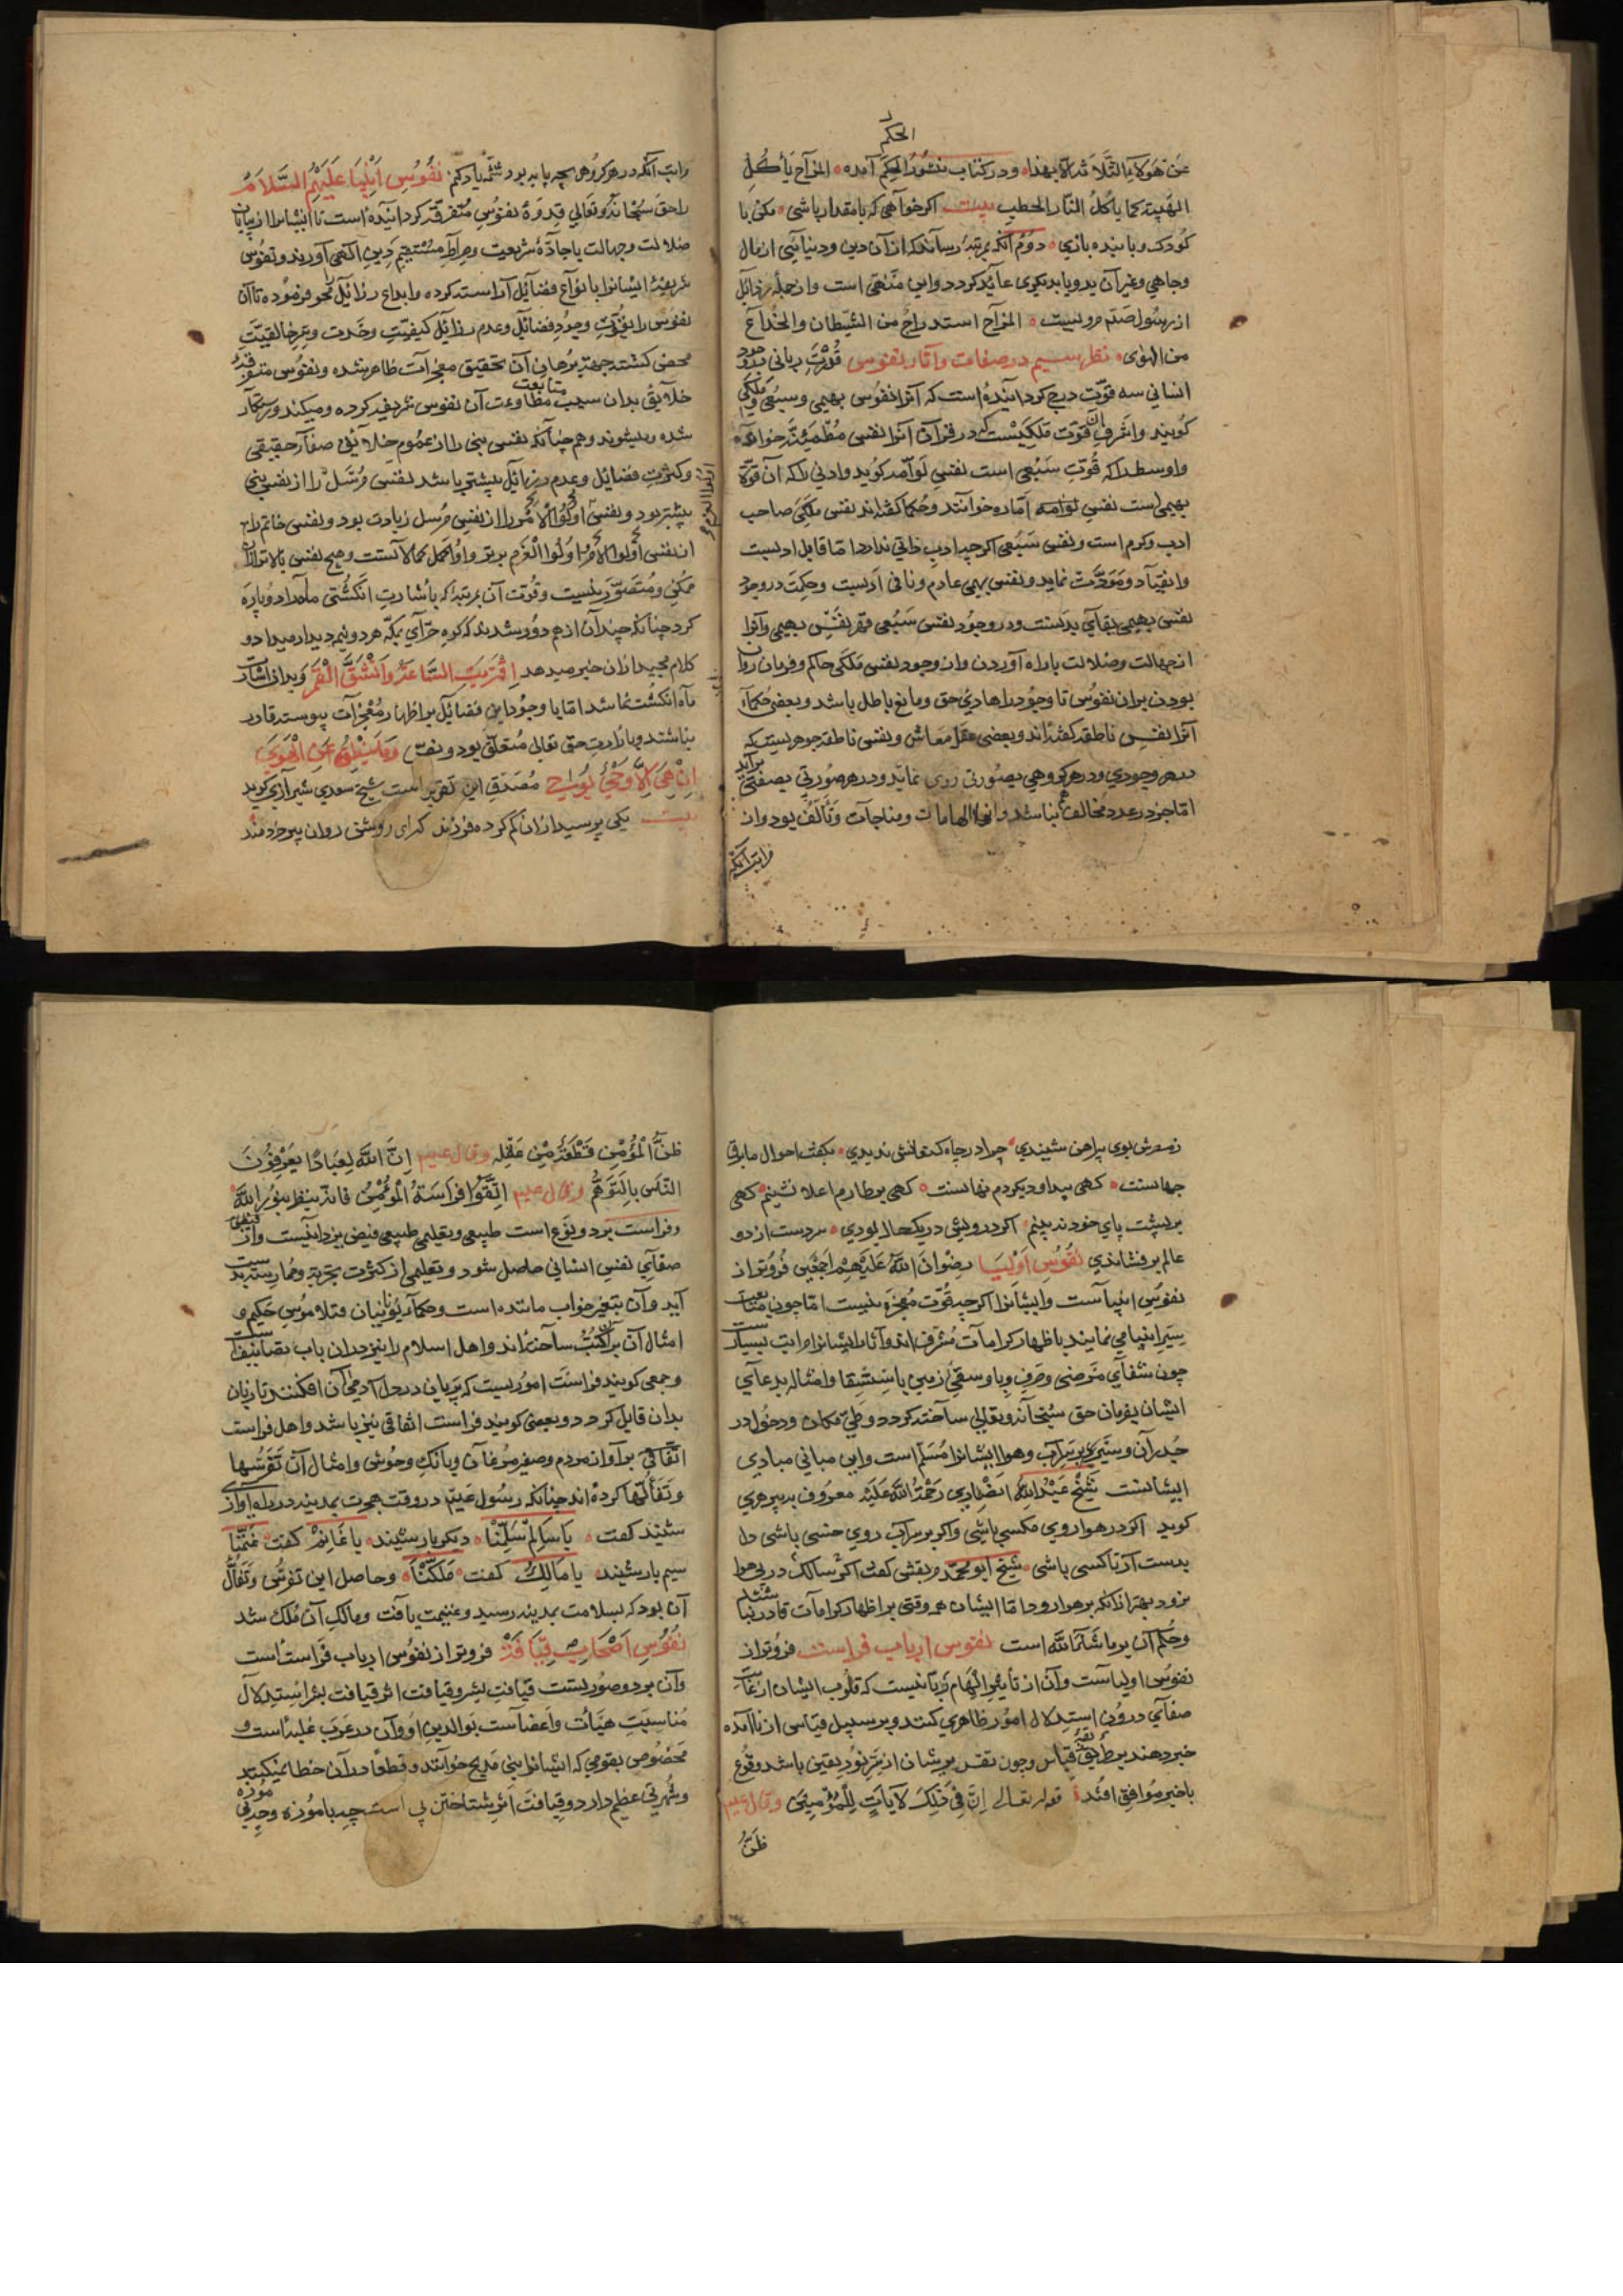 الحکم
عن هؤلاء الثلاثة بهذا و در کتاب منثور الحکم آمده المزاح یأکل
الهیبة کما یاکل النّار الحطب بیت اکر خواهی که با مقدار باشی مکن با
کودک و با بنده بازی دوم آنکه بمرتبۀ رساند که از آن دین و دنیایی از مال
و جاهی و غیر آن بدو یا بدیکری عاید کردد و این منهی است و از جمله رذایل
از رسول صلعم مرویست المزاح استدراج من الشّیطان و الخداع
من الهوی نظر سیم در صفات و آثار نفوس قدرت ربانی در وجود
انسانی سه قوّت درج کردانیده است که آنرا نفوس بهیمی و سبعی و ملکی
کویند و اشرف آن قوّت ملکیست که در قرآن آنرا نفس مطمئنّه خوانده
و اوسط را که قوّت سبعی است نفس لوّامه کوید و ادنی را که آن قوّة
بهیمی است نفس امّاره خوانند و حکما کفته اند نفس ملکی صاحب
ادب و کرم است و نفس سبعی اکر چه ادب ذاتی ندارد امّا قابل ادبست
و انقیاد و مودّت نماید و نفس بهیمی عادم و نافی ادبست و حکمت در وجود
نفس بهیمی بقای بدنست و در وجود نفس سبعی قهر نفس بهیمی و آنرا
از جهالت و ضلالت با راه آوردن و از وجود نفس ملکی حاکم و فرمان روان
بودن بر آن نفوس تا وجود را هادی حق و مانع باطل باشد و بعضی حکما
آنرا نفس ناطقه کفته اند و بعضی عقل معاش و نفس ناطقه جوهریست که
در هر وجودی و در هر کروهی بصورتی روی نماید و در هر صورتی بصفتی برآید
امّا جز در عدد مخالف نباشد و آنرا الهامات و مناجات و تألّف بود و آن
مراتب آنکه
راتب آنکه در هر کروهی بچه پایه بود شمّه یاد کنم نفوس انبیا علیهم السّلام
را حق سبحانه و تعالی قدوۀ نفوس متفرقه کردانیده است تا ایشانرا از بیابان
ضلالت و جهالت با جادّۀ شریعت و صراط مستقیم دین الهی آورند و نفوس
شریفۀ ایشانرا بانواع فضایل آراسته کرده و انواع رذایل محو فرموده تا آن
نفوس را بقوّت وجود فضایل و عدم رذایل کیفیّت وحدت و سرّ خالقیّت
محض کشته جهة برهان آن تحقیق معجزات ظاهر شده و نفوس متفرّقۀ
خلایق بدان سبب متابعت مطاوعت آن نفوس شریف کرده و میکند و رستکار
شده و میشوند و همچنانکه نفس نبی را از عموم خلایق صفای حقیقی
و کثرت فضایل و عدم رذایل بیشتر باشد نفس مرسل را از نفس نبی
بیشتر بود و نفس اولوا الامر را از نفس مرسل زیادت بود و نفس خاتم را
از نفس اولوا الامر اولوا العزم برتر و اکمل کمالاتست و هیچ نفس بالاتر از آن
ممکن و متصوّر نیست و قوّت آن بمرتبۀ که باشارت انکشتی ماه را دو پاره
کرد چنانکه چندان از هم دور شدند که کوه حرای بمکّه هر دو نیم دیدار میداد و
کلام مجید از آن خبر میدهد اقتربت السّاعة و انشقّ القمر و بدان اشارت
ماه انکشت نما شد امّا با وجود این فضایل بر اظهار معجزات پیوسته قادر
نباشند و بارادت حق تعالی متعلّق بود و نصّ و ما ینطق عن الهوی
ان هی الّا وحی یوحی مصدق این تقریر است شیخ سعدی شیرازی کوید
بیت یکی پرسید از آن کم کرده فرزند که ای روشن روان پیر خردمند
ز مصرش بوی پیراهن شنیدی چرا در چاه کنعانش ندیدی بکفت احوال ما برق
جهانست کهی پیدا و دیکر دم نهانست کهی بر طارم اعلا نشینم کهی
بر پشت پای خود نبینم اکر درویش در یکحال بودی سر دست از دو
عالم برفشاندی نفوس اولیا رضوان الله علیهم اجمعین فروتر از
نفوس انبیاست و ایشانرا اکر چه قوّت معجزه نیست امّا چون متابعت
سیر انبیا می نمایند باظهار کرامات مشرّف اند و آثار ایشانرا مراتب بسیارست
چون شفای مرضی و صرف وبا و سقی زمین باستسقا و امثاله بدعای
ایشان بفرمان حق سبحانه و تعالی ساخته کردد و طیّ مکان و دخول در
جدران و سیر بر آب و هوا ایشانرا مسلّم است و این مبانی مبادی
ایشانست شیخ عبد الله انصاری رحمة الله علیه معروف به پیر هری
کوید اکر در هوا روی مکسی باشی و اکر بر سر آب روی خسی باشی دل
بدست آر تا کسی باشی شیخ ابو محمد مرتعش کفت اکر سالک در پی هوا
نرود بهتر از آنکه بر هوا رود امّا ایشان همه وقتی بر اظهار کرامات قادر نباشند
و حکم آن بر ما شاء الله است نفوس ارباب فراست فروتر از
نفوس اولیاست و آن از تأثیر الهام ربّانیست که قلوب ایشان از غایت
صفای درون استدلال امور ظاهری کنند و بر سبیل قیاس از نا آمده
خبر دهند بر طریق قیاس و چون تفرّس بریشان از سرّ نور یقین باشد وقوع
با خبر موافق افتد قوله تعالی انّ فی ذلک لآیات للمؤمنین و قال علیم
ظنّ
ظنّ المؤمن قطعة من عقله و قال علیم انّ الله لعبادا یعرفون
النّاس بالتّوهّم و قال علیم اتّقوا فراسة المؤمن فانّه ینظر بنور الله
و فراست بر دو نوع است طبیعی و تعلیمی طبیعی فیض یزدانیست و از
صفای نفس انسانی حاصل شود و تعلیمی از کثرت تجربه و ممارست پدید
آید و آن بتعبیر خواب مانند است و حکمای یونانیان مثلا موسن حکیم و
امثال آن بر آن کتب ساخته اند و اهل اسلام را نیز در آن باب تصانیف است
و جمعی کویند فراست امور یست که پریان در دل آدمیان افکنند تا زبان
بدان قایل کردد و بعضی کویند فراست اتفاقی نیز باشد و اهل فراست
اتّفاقی بر آواز مردم و صفیر مرغان و بانک وحوش و امثال آن تفرّسها
و تفألها کرده اند چنانکه رسول علیم در وقت هجرت بمدینه در راه آواز
شنید کفت یا سالم سلمنا دیکر بار شنید یا غانم کفت غنمنا
سیم بار شنید یا مالک کفت ملکنا و حاصل این تفرّس و تفأل
آن بود که بسلامت بمدینه رسید و غنیمت یافت و مالک آن ملک شد
نفوس اصحاب قیافه فروتر از نفوس ارباب فراست است
و آن بر دو صورتست قیافت بشر و قیافت اثر قیافت بشر استدلال
مناسبت هیّات و اعضاست بوالدین او و آن در عرب غلبه است و
مخصوص بقومی که ایشانرا بنی مدلج خوانند و قطعا در آن خطا نمیکنند
و شهرتی عظیم دارد و قیافت اثر شناختن پی است چه با موزه و چه بی موزه